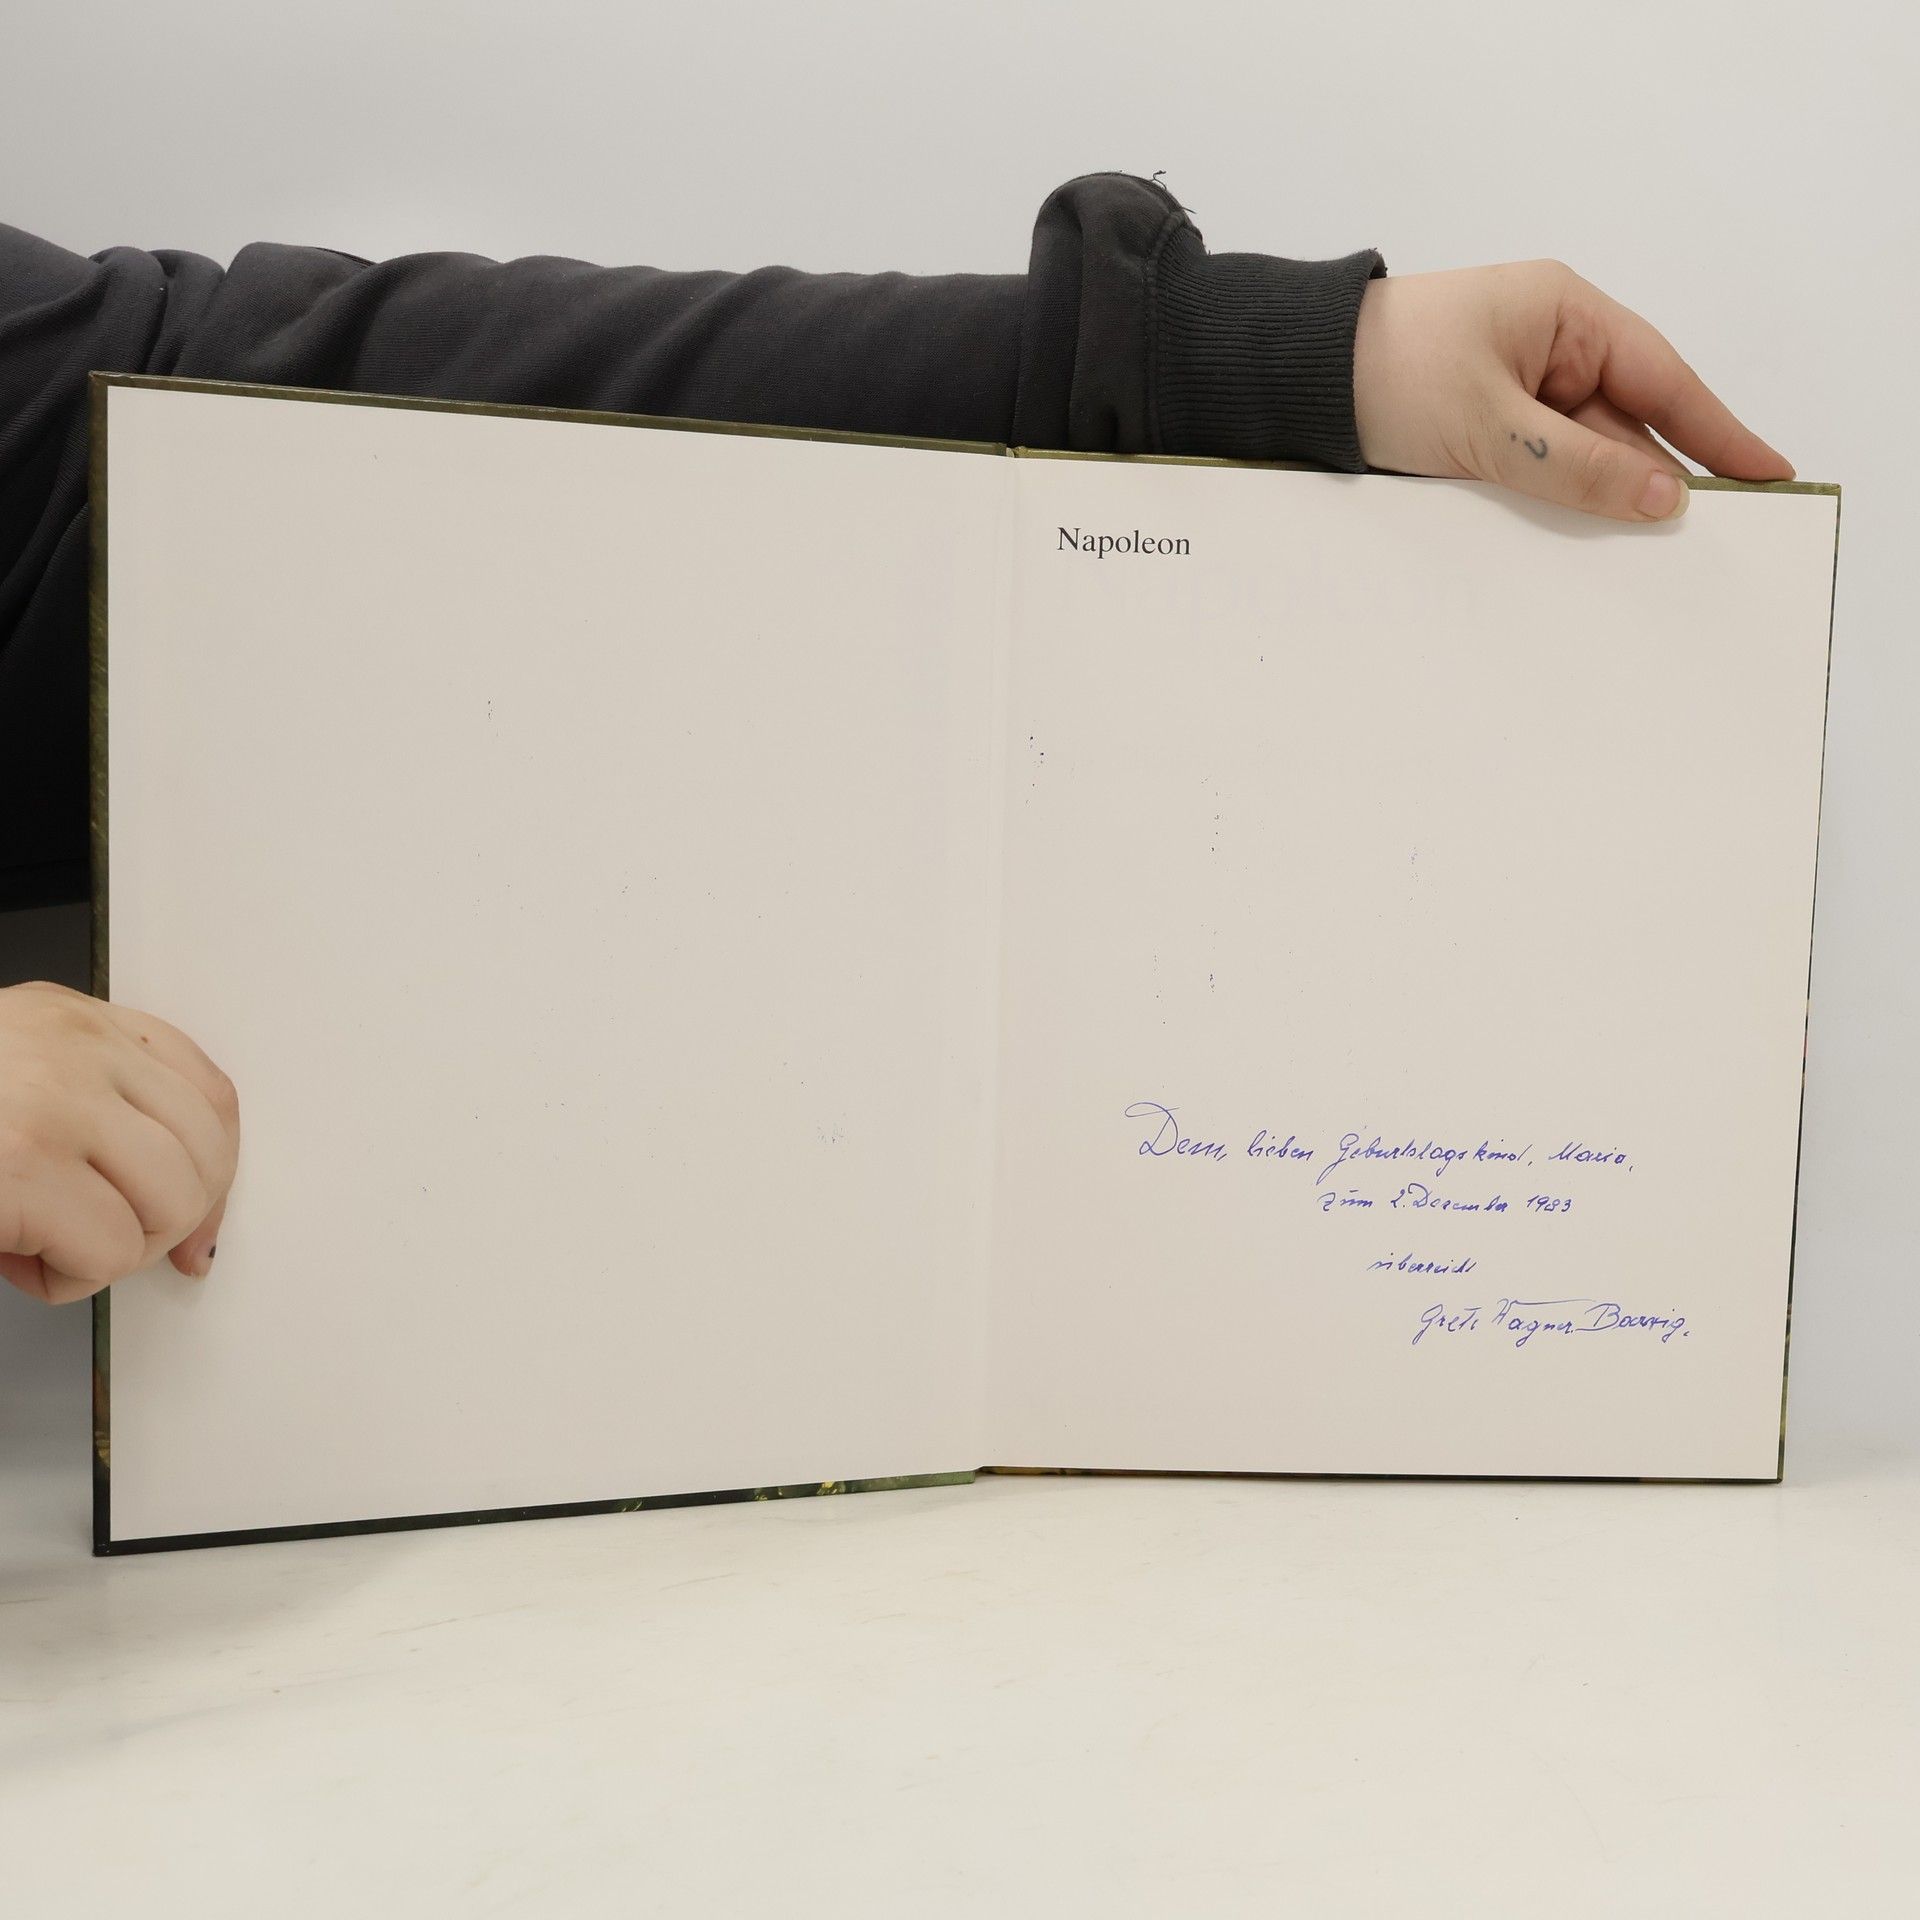 Napoleon
Dem, lieben Geburtstagskind, Maria,
zum 2. Dezember 1983
überreicht
Grete Wagner